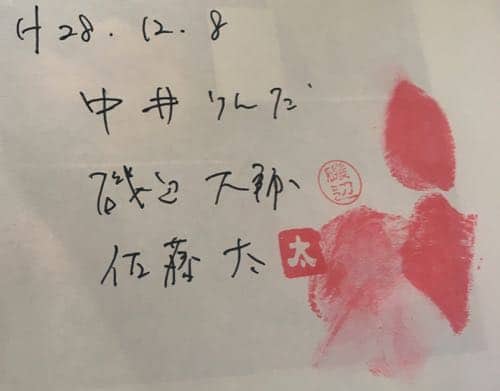 H28.12.8
中井りんだ
磯辺大輔 磯辺
佐藤太 太